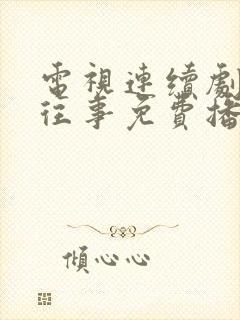 電視連續劇
往事免費播
傾心心